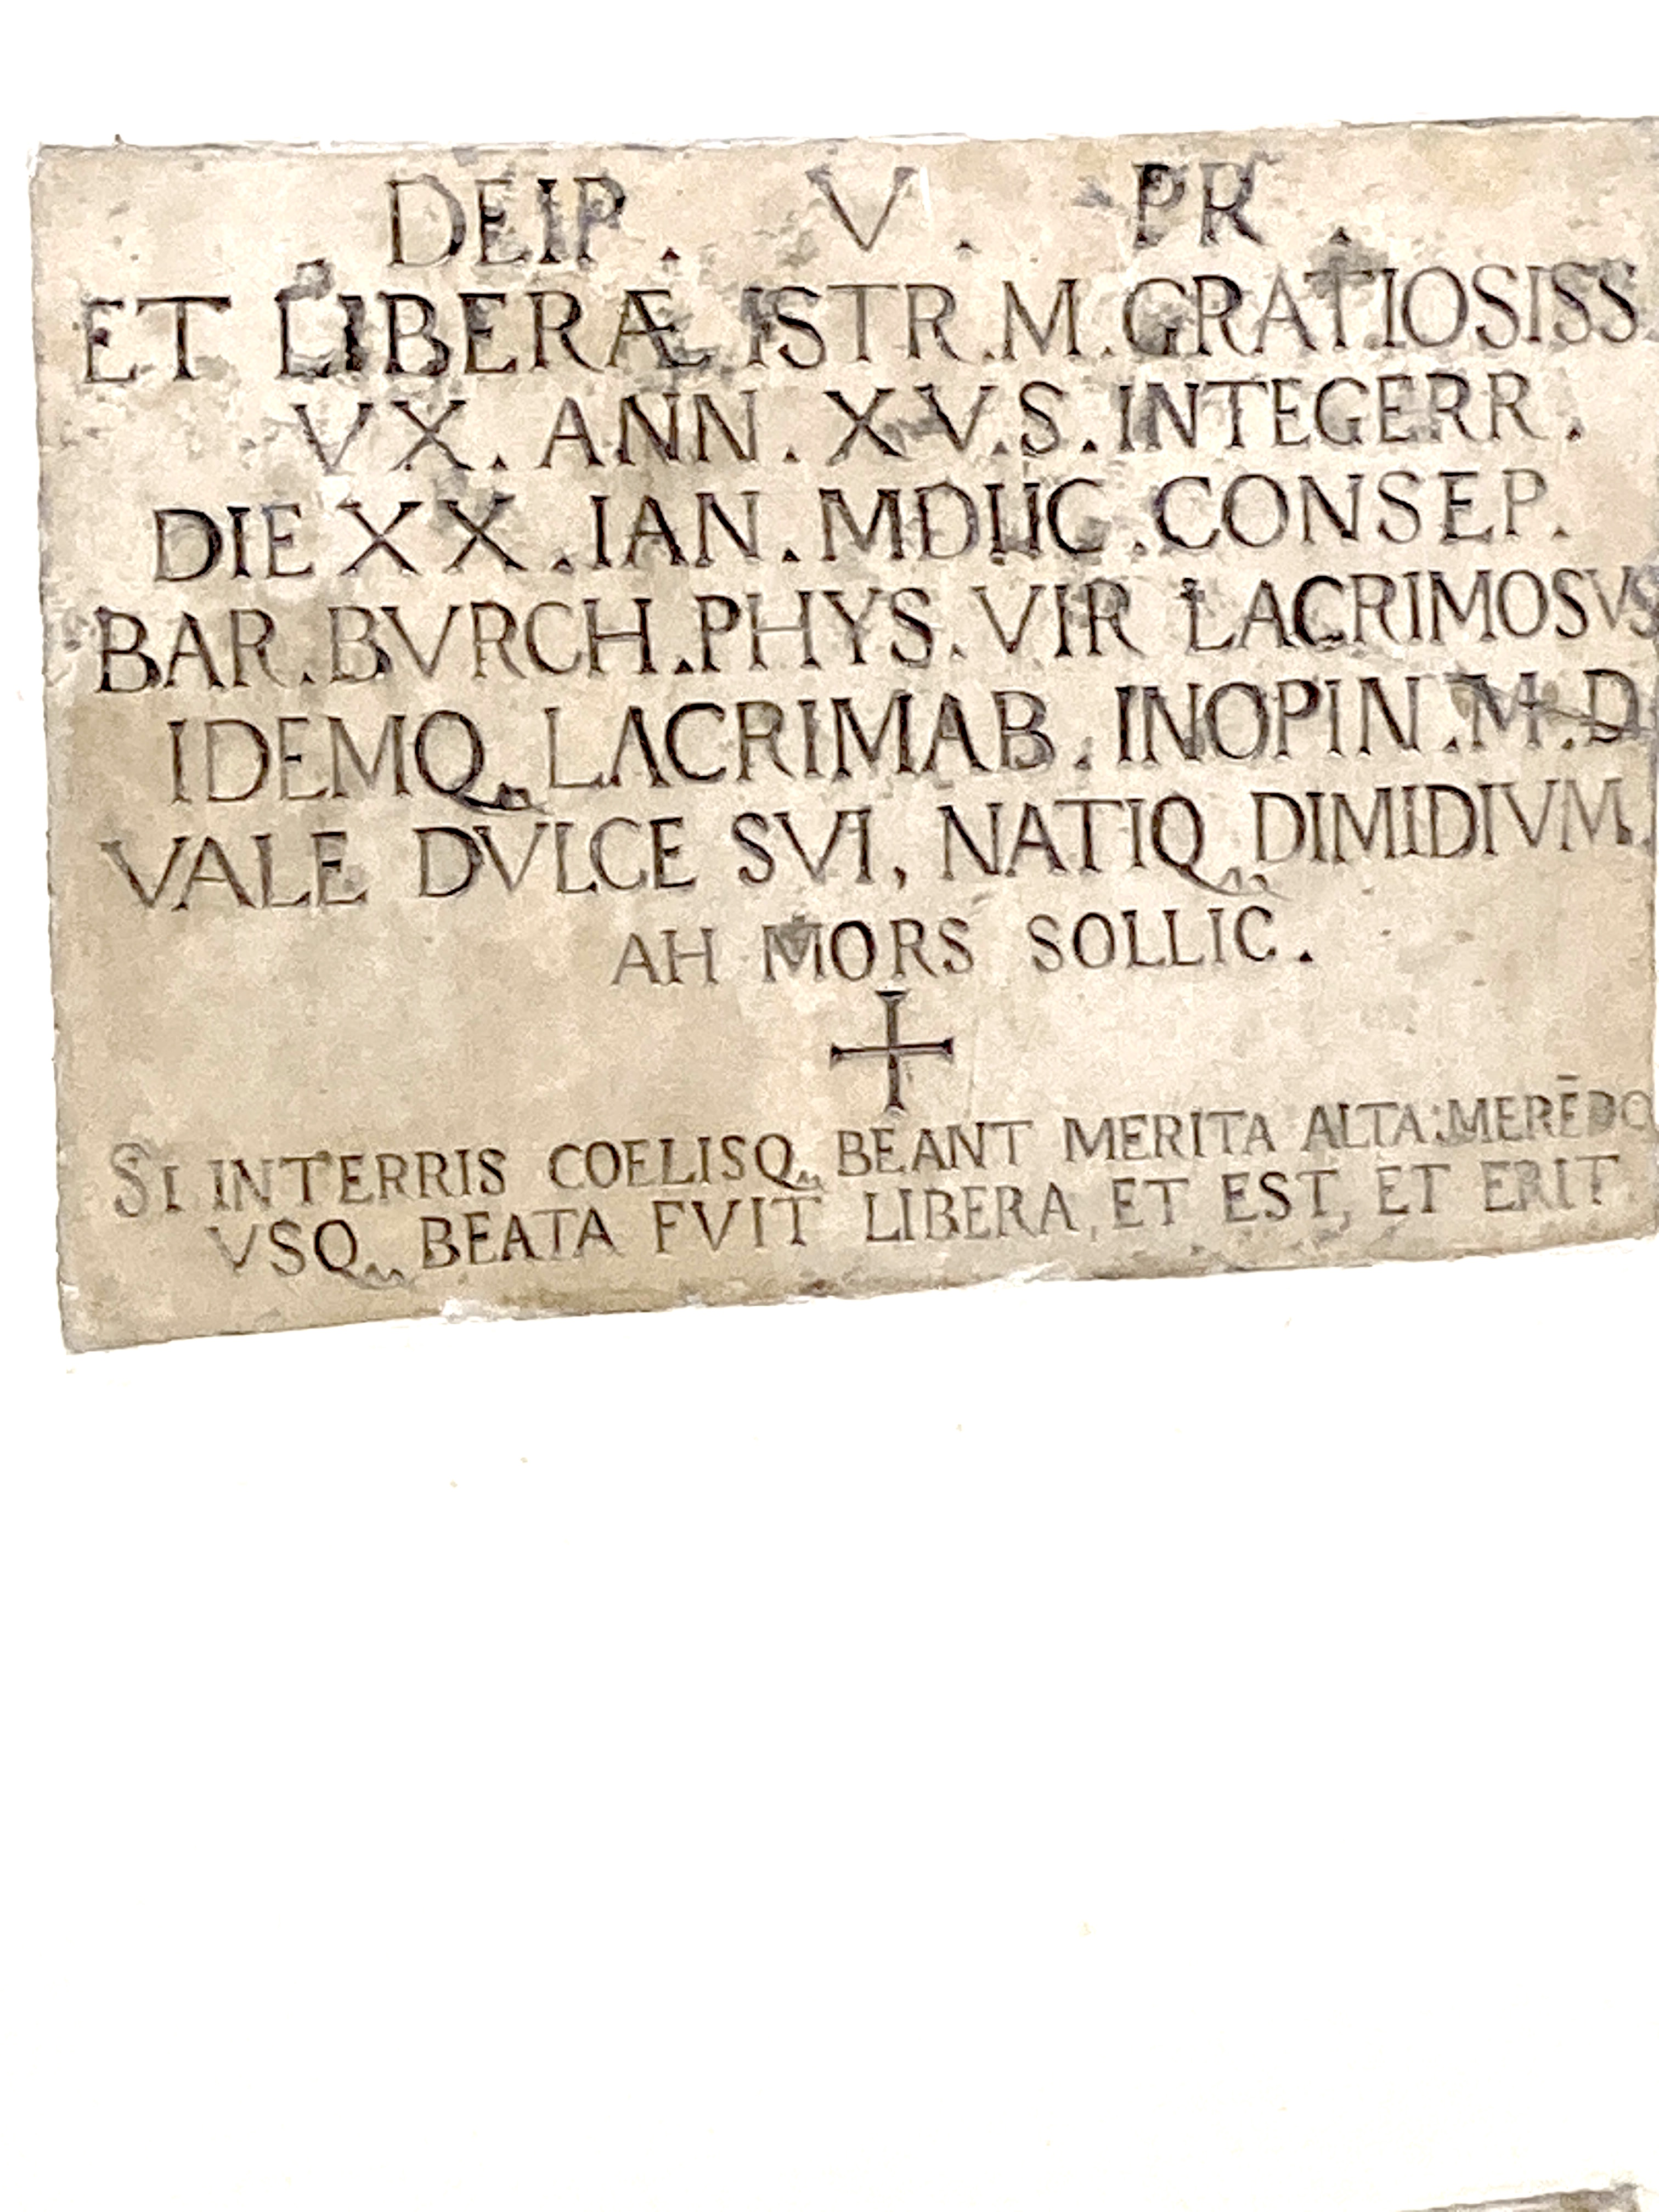 DEIP. V. PR.
ET LIBERÆ ISTR.M.GRATIOSISS.
VX. ANN. XV.S.INTEGERR.
DIE XX.IAN.MDIIC.CONSEP.
BAR.BVRCH.PHYS.VIR LACRIMOSVS
IDEMQ. LACRIMAB. INOPIN.M.D
VALE DVLCE SVI, NATIQ. DIMIDIVM.
AH MORS SOLLIC.
SI INTERRIS COELISQ. BEANT MERITA ALTA:MERĒDO
VSQ. BEATA FVIT LIBERA, ET EST, ET ERIT